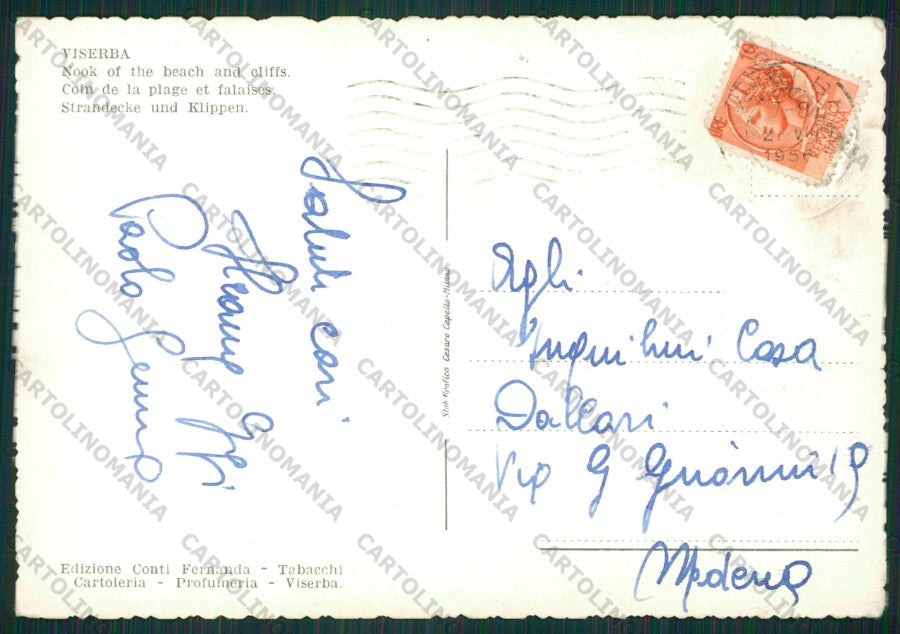 VISERBA
Nook of the beach and cliffs.
Coin de la plage et falaises.
Strandecke und Klippen.
Saluti cari
Paola
Edizione Conti Fernanda - Tabacchi
Cartoleria - Profumeria - Viserba.
Stab. Grafico Cesare Capello - Milano
1956
Agli
Inquilini Casa
Dallari
Via G
Modena
CARTOLINOMANIA